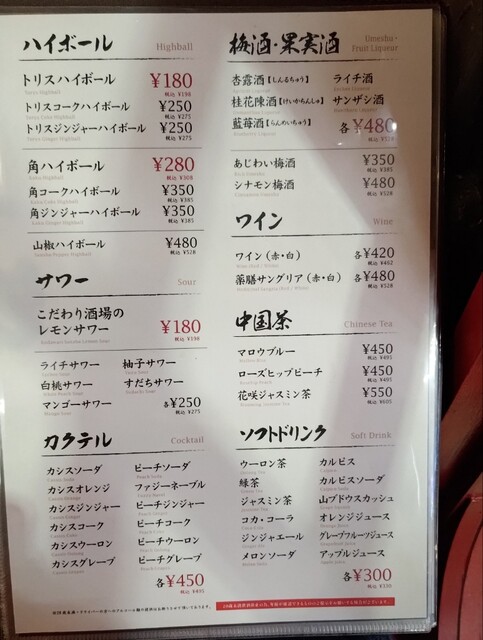 ハイボール Highball
トリスハイボール ¥180
税込 ¥198
トリスコークハイボール ¥250
税込 ¥275
トリスジンジャーハイボール ¥250
税込 ¥275
角ハイボール ¥280
税込 ¥308
角コークハイボール ¥350
税込 ¥385
角ジンジャーハイボール ¥350
税込 ¥385
山椒ハイボール ¥480
税込 ¥528
サワー Sour
こだわり酒場の
レモンサワー ¥180
税込 ¥198
ライチサワー 柚子サワー
白桃サワー すだちサワー
マンゴーサワー 各¥250
税込 ¥275
カクテル Cocktail
カシスソーダ ピーチソーダ
カシスオレンジ ファジーネーブル
カシスジンジャー ピーチジンジャー
カシスコーク ピーチコーク
カシスウーロン ピーチウーロン
カシスグレープ ピーチグレープ
各¥450
税込 ¥495
梅酒・果実酒 Umeshu・
Fruit Liqueur
杏露酒【しんるちゅう】 ライチ酒
桂花陳酒【けいかちんしゅ】 サンザシ酒
藍苺酒【らんめいちゅう】 各¥480
税込 ¥528
あじわい梅酒 ¥350
税込 ¥385
シナモン梅酒 ¥480
税込 ¥528
ワイン Wine
ワイン（赤・白） 各¥420
税込 ¥462
薬膳サングリア（赤・白） 各¥480
税込 ¥528
中国茶 Chinese Tea
マロウブルー ¥450
税込 ¥495
ローズヒップピーチ ¥450
税込 ¥495
花咲ジャスミン茶 ¥550
税込 ¥605
ソフトドリンク Soft Drink
ウーロン茶 カルピス
緑茶 カルピスソーダ
ジャスミン茶 山ブドウスカッシュ
コカ・コーラ オレンジジュース
ジンジャエール グレープフルーツジュース
メロンソーダ アップルジュース
各¥300
税込 ¥330